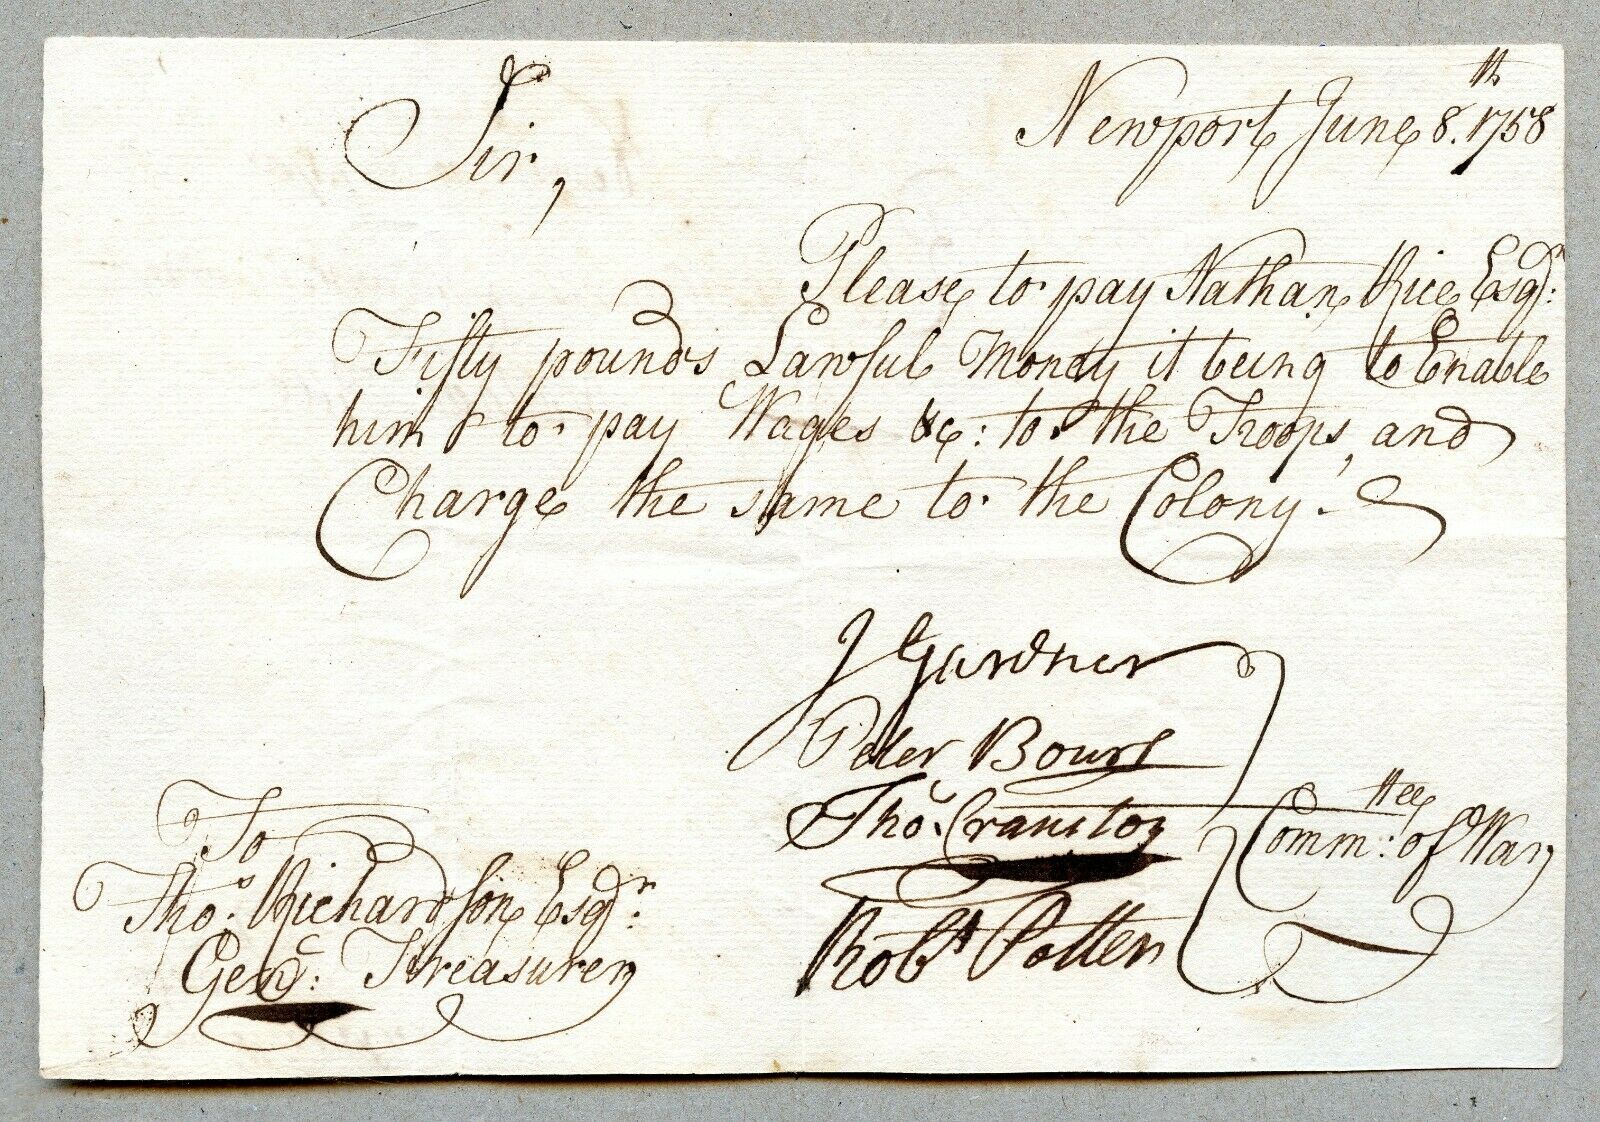 Newport June 8.th 1758
Sir,
Please to pay Nathan Rice Esqr:
Fifty pounds Lawful Money it being to Enable
him to pay Wages &c: to the Troops, and
Charge the same to the Colony.
J Gardner
Peter Bours
Thos. Cranston
Robt Potter
Commttee: of War
To
Thos. Richardson Esqr:
Genl: Treasurer